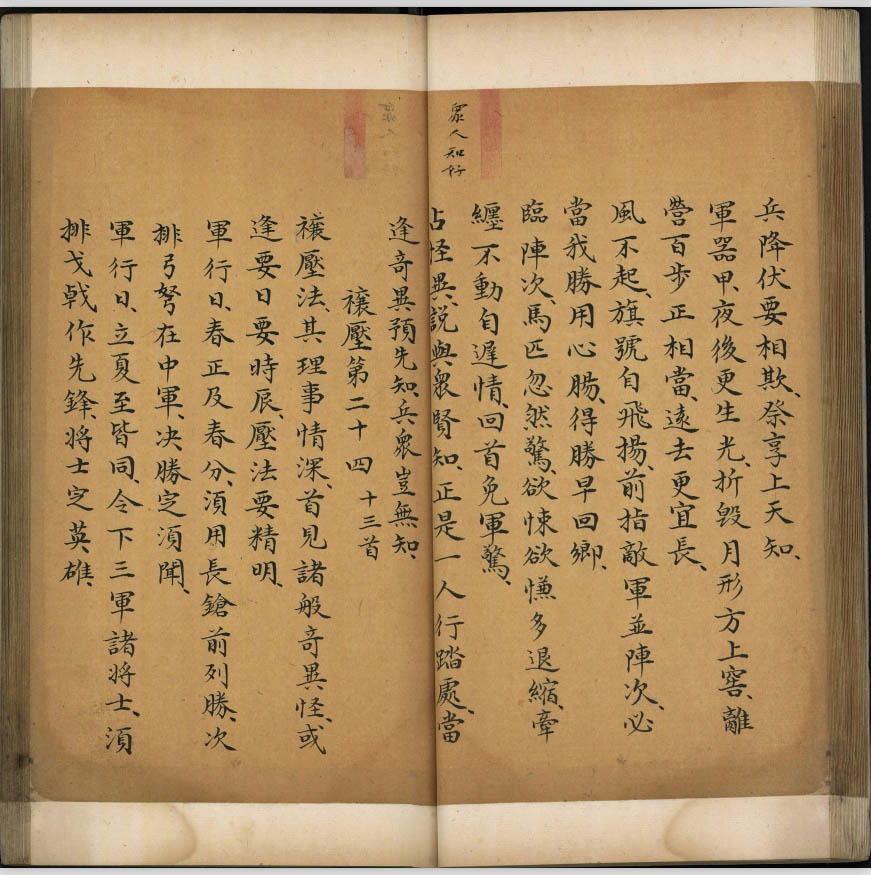 兵降伏要相欺、祭享上天知、
軍器甲、夜後更生光、折毀月形方上窖、離
營百步正相當、遠去更宜長、
風不起、旗號自飛揚、前指敵軍並陣次、必
當我勝用心腸、得勝早回鄉、
臨陣次、馬匹忽然驚、欲悚欲慊多退縮、牽
纏不動自遲情、回首免軍驚、
占怪異、説與衆賢知、正是一人行踏處、當
眾人知好
逢竒異預先知、兵衆豈無知、
禳壓第二十四 十三首
禳壓法、其理事情深、首見諸般竒異怪、或
逢要日要時辰、壓法要精明、
軍行日、春正及春分、須用長鎗前列勝、次
排弓弩在中軍、决勝定須聞、
軍行日、立夏至皆同、令下三軍諸将士、須
排戈戟作先鋒、将士定英雄、